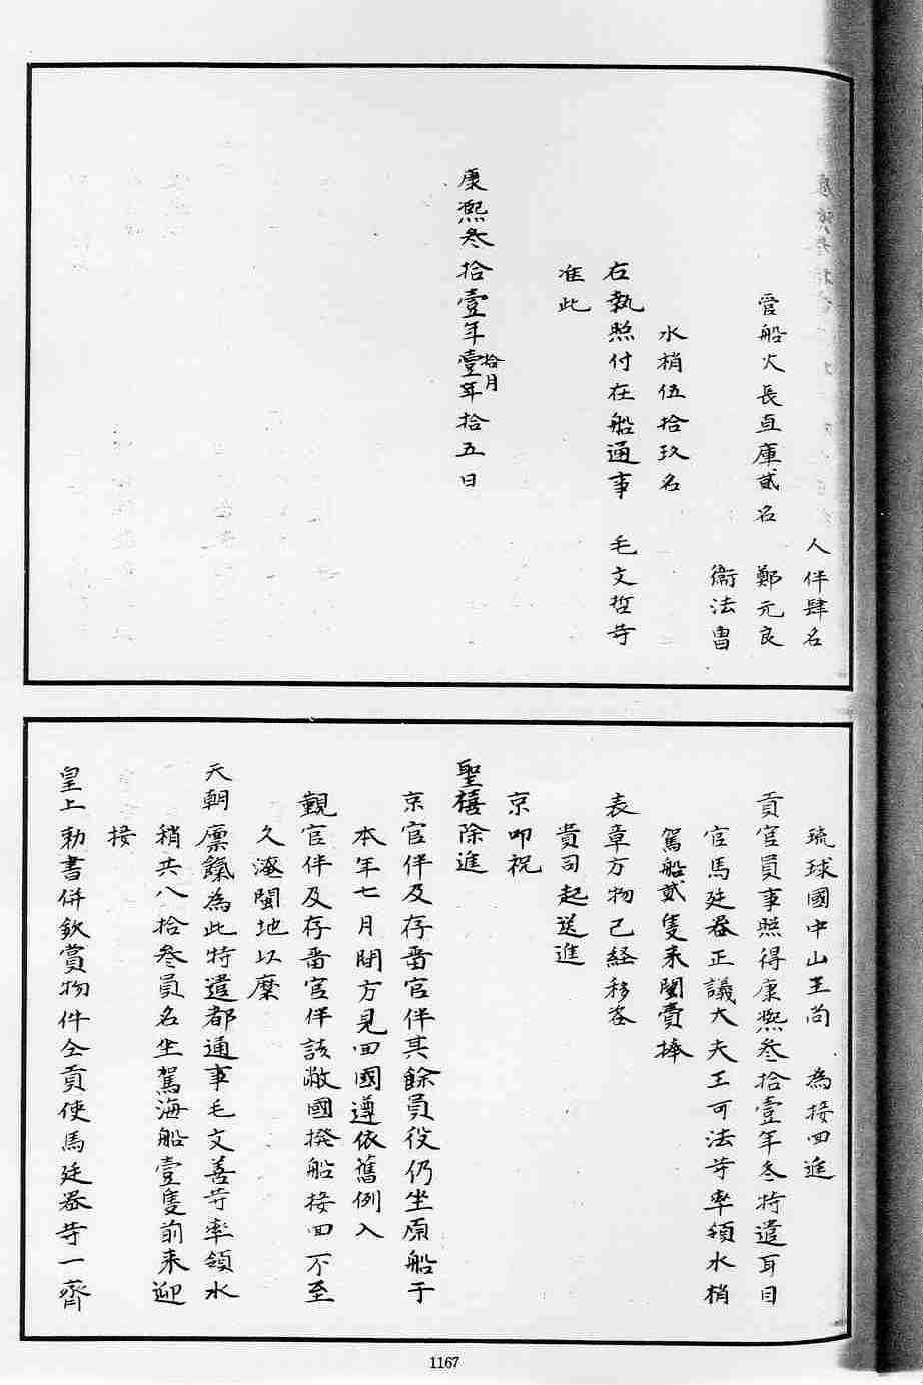 人伴肆名
管船火長直庫貳名　鄭元良
衞法冑
水梢伍拾玖名
右執照付在船通事　毛文哲等
准此
康熙叄拾壹年壹年拾五日
拾月
琉球國中山王尚　為接回進
貢官員事照得康熙叄拾壹年冬特遣耳目
官馬廷器正議大夫王可法等率領水梢
駕船貳隻來閩賫捧
表章方物已經移咨
貴司起送進
京叩祝
聖禧除進
京官伴及存畱官伴其餘員役仍坐原船于
本年七月間方見回國遵依舊例入
覲官伴及存畱官伴該敝國撥船接回不至
久淹閩地以糜
天朝廩餼為此特遣都通事毛文善等率領水
稍共八拾叄員名坐駕海船壹隻前來迎
接
皇上勅書併欽賞物件仝貢使馬廷器等一齊
1167